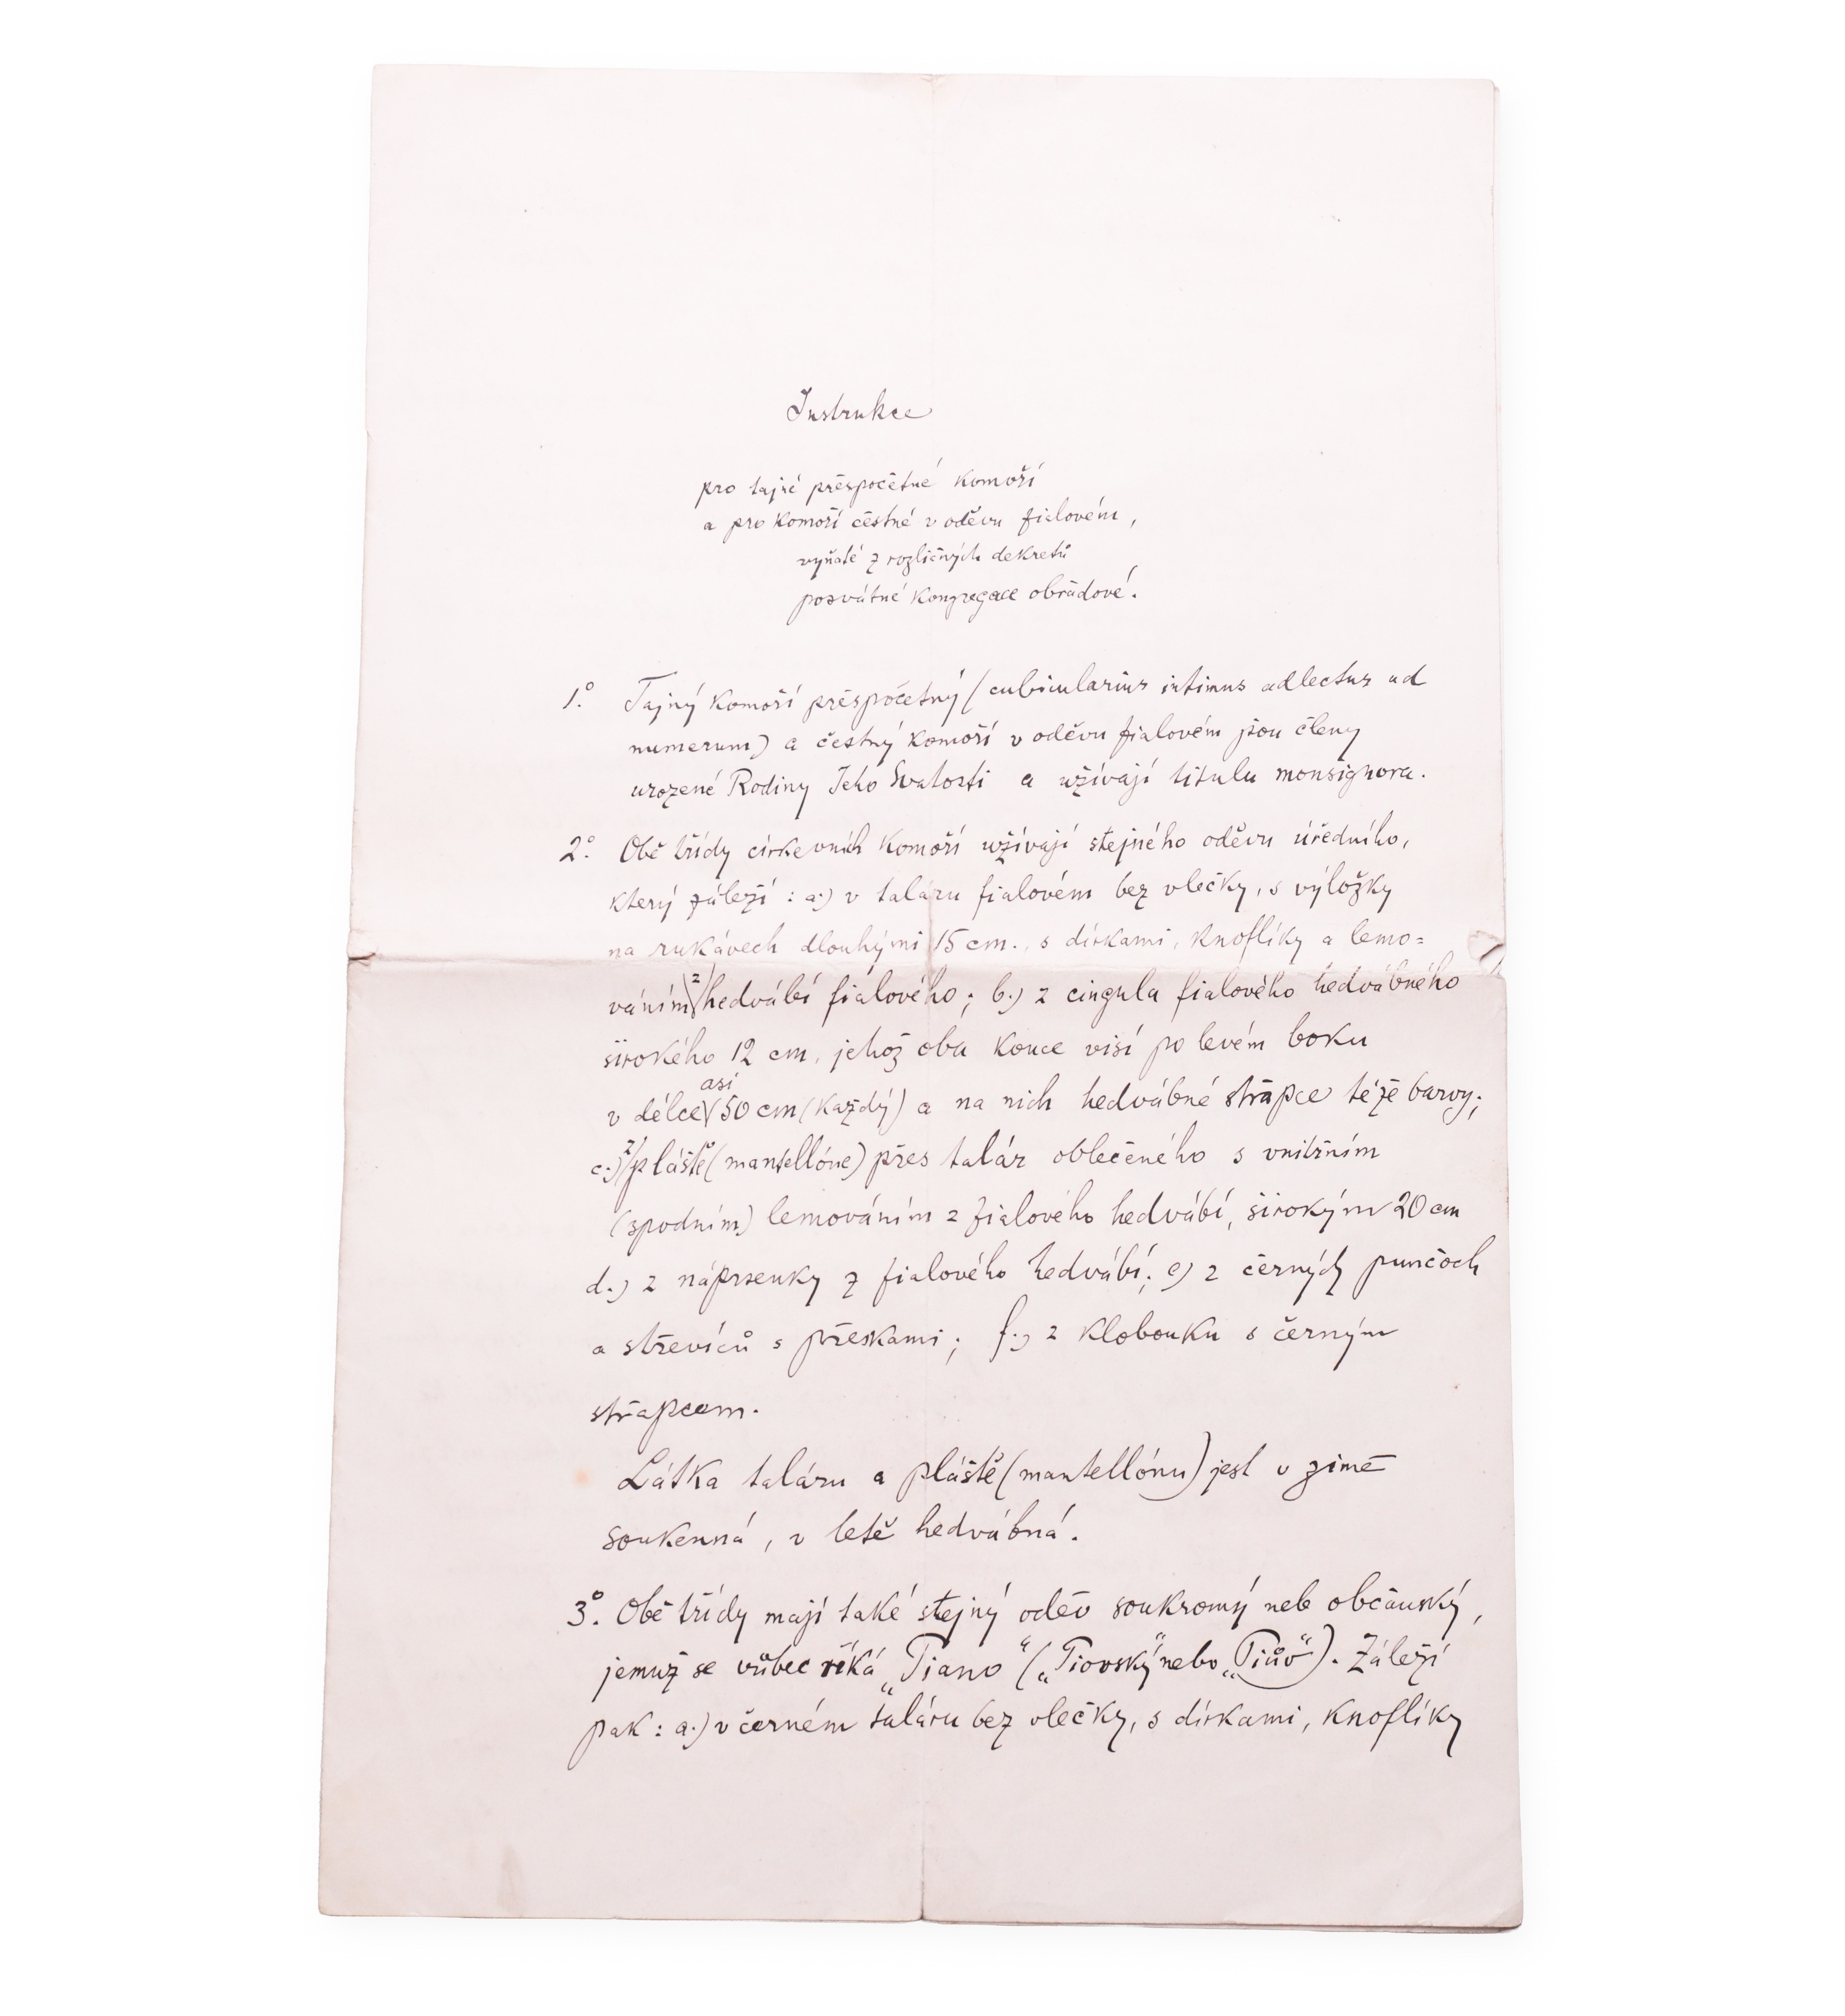 Instrukce
pro tajné přespočetné komoří
a pro komoří čestné v oděvu fialovém,
vyňaté z rozličných dekretů
posvátné kongregace obřadové.
1.° Tajný komoří přespočetný (cubicularius intimus adlectus ad
numerum) a čestný komoří v oděvu fialovém jsou členy
urozené Rodiny Jeho Svatosti a užívají titulu monsignora.
2.° Obě třídy církevních komoří užívají stejného oděvu úředního,
který záleží : a.) v taláru fialovém bez vlečky, s výložky
na rukávech dlouhými 15 cm., s dírkami, knoflíky a lemo=
váním z hedvábí fialového; b.) z cingula fialového hedvábného
širokého 12 cm, jehož oba konce visí po levém boku
v délce asi 50 cm (každý) a na nich hedvábné střapce téže barvy;
c.) z pláště (mantellóne) přes talár oblečeného s vnitřním
(spodním) lemováním z fialového hedvábí, širokým 20 cm
d.) z náprsenky z fialového hedvábí; e) z černých punčoch
a střevíců s přeskami; f.) z klobouku s černým
střapcem.
Látka taláru a pláště (mantellónu) jest v zimě
soukenná, v letě hedvábná.
3.° Obě třídy mají také stejný oděv soukromý neb občanský,
jemuž se vůbec říká „Piano“ („Piovský“ nebo „Piův“). Záleží
pak : a.) v černém taláru bez vlečky, s dírkami, knoflíky